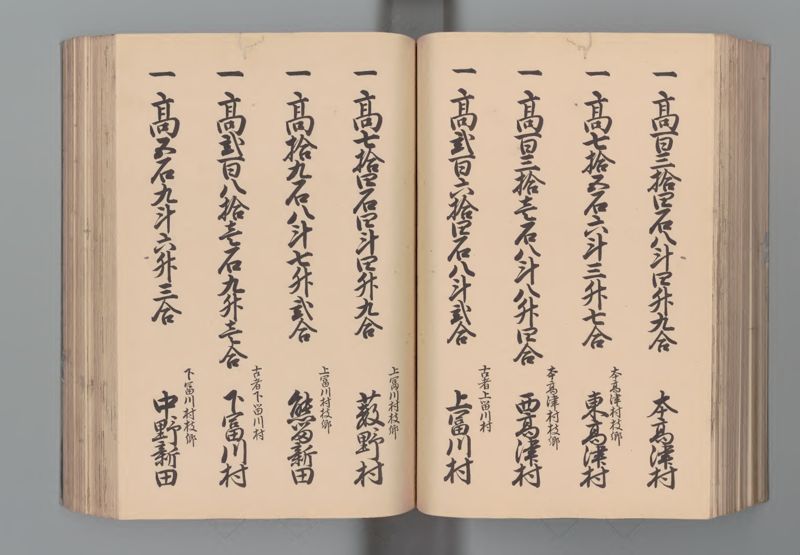 一 高百三拾四石八斗四升九合 本高津村
一 高七拾五石六斗三升七合 本高津村枝郷 東高津村
一 高百三拾壱石八斗八升四合 本高津村枝郷 西高津村
一 高弐百六拾四石八斗弐合 古者上留川村 上冨川村
一 高七拾四石四斗四升九合 上冨川村枝郷 薮野村
一 高拾九石八斗七升弐合 上冨川村枝郷 熊留新田
一 高弐百八拾壱石九升壱合 古者下留川村 下冨川村
一 高五石九斗六升三合 下冨川村枝郷 中野新田